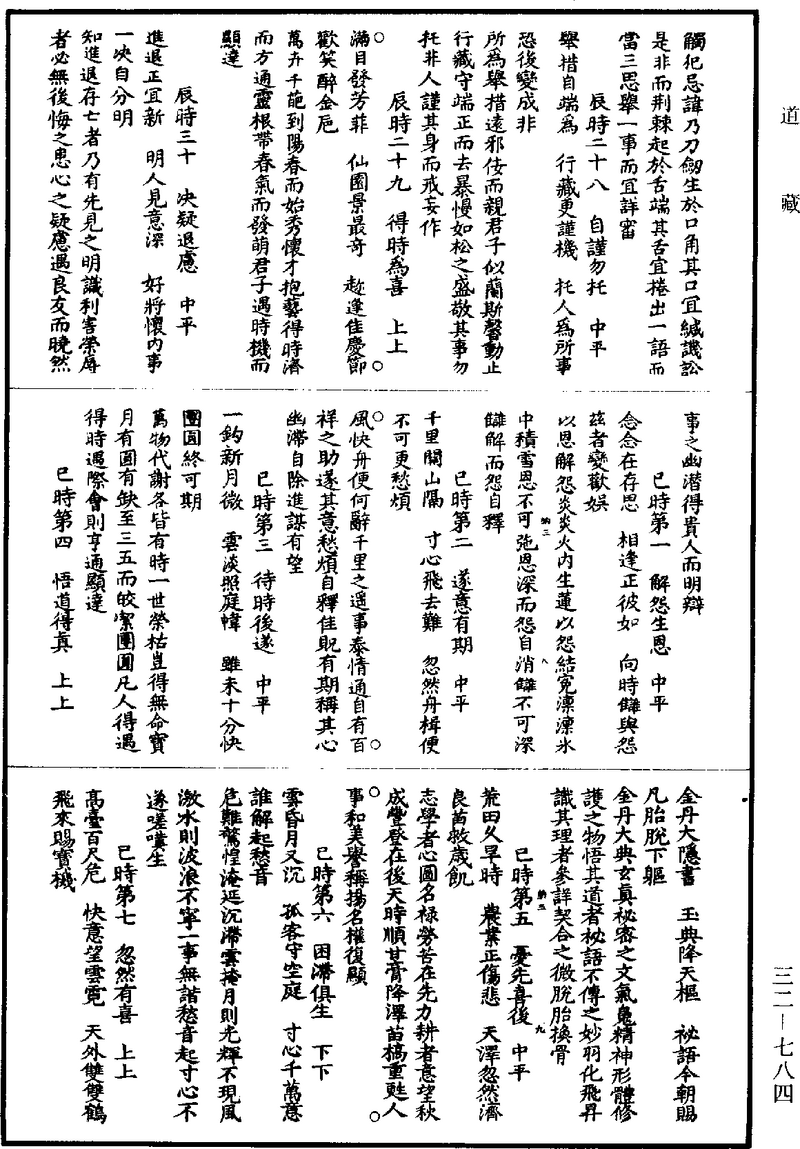 道藏
觸犯忌諱乃刀劒生於口角其口宜緘譏訟
是非而荆棘起於舌端其舌宜捲出一語而
當三思舉一事而宜詳審
辰時二十八　自謹勿托　中平
舉措自端為　行藏更謹機　托人為所事
恐後變成非
所為舉措遠邪佞而親君子似蘭斯馨動止
行藏守端正而去暴慢如松之盛敬其事勿
托非人謹其身而戒妄作
辰時二十九　得時為喜　上上
滿目發芳菲　仙園景最奇　趂逢佳慶節
歡笑醉金巵
萬卉千葩到陽春而始秀懷才抱藝得時濟
而方通靈根帶春氣而發萌君子遇時機而
顯達
辰時三十　决疑退慮　中平
進退正宜新　明人見意深　好將懷內事
一决自分明
知進退存亡者乃有先見之明識利害榮辱
者必無後悔之患心之疑慮遇良友而曉然
事之幽潜得貴人而明辯
巳時第一　解怨生恩　中平
念念在存思　相逢正彼如　向時讎與怨
兹者變歡娱
以恩解怨炎炎火內生蓮以怨結寃凛凛氷
中積雪恩不可弛恩深而怨自消讎不可深
讎解而怨自釋
巳時第二　遂意有期　中平
千里關山隔　寸心飛去難　忽然舟楫便
不可更愁煩
風快舟便何辭千里之遥事泰情通自有百
祥之助遂其意愁煩自釋佳貺有期稱其心
幽滯自除進謀有望
巳時第三　待時後遂　中平
一鈎新月微　雲淡照庭幃　雖未十分快
團圓終可期
萬物代謝各皆有時一世榮枯豈得無命寳
月有圓有缺至三五而皎潔團圓凡人得遇
得時遇際會則亨通顯達
巳時第四　悟道得真　上上
金丹大隱書　玉典降天樞　祕語今朝賜
凡胎脫下軀
金丹大典玄真祕密之文氣䰟精神形體修
護之物悟其道者祕語不傳之妙羽化飛昇
識其理者參詳契合之微脫胎換骨
巳時第五　憂先喜後　中平
荒田久旱時　農業正傷悲　天澤忽然濟
良苗救歲飢
志學者心圖名禄勞苦在先力耕者意望秋
成豐登在後天時順甘膏降澤苗槁重甦人
事和美譽稱揚名權復顯
巳時第六　困滯俱生　下下
雲昏月又沉　孤客守空庭　寸心千萬意
誰解起愁音
危難驚惶淹延沉滯雲掩月則光輝不現風
激水則波浪不寧一事無諧愁音起寸心不
遂嗟嘆生
巳時第七　忽然有喜　上上
高臺百尺危　快意望雲霓　天外雙雙鶴
飛來賜寳機
三二—七八四